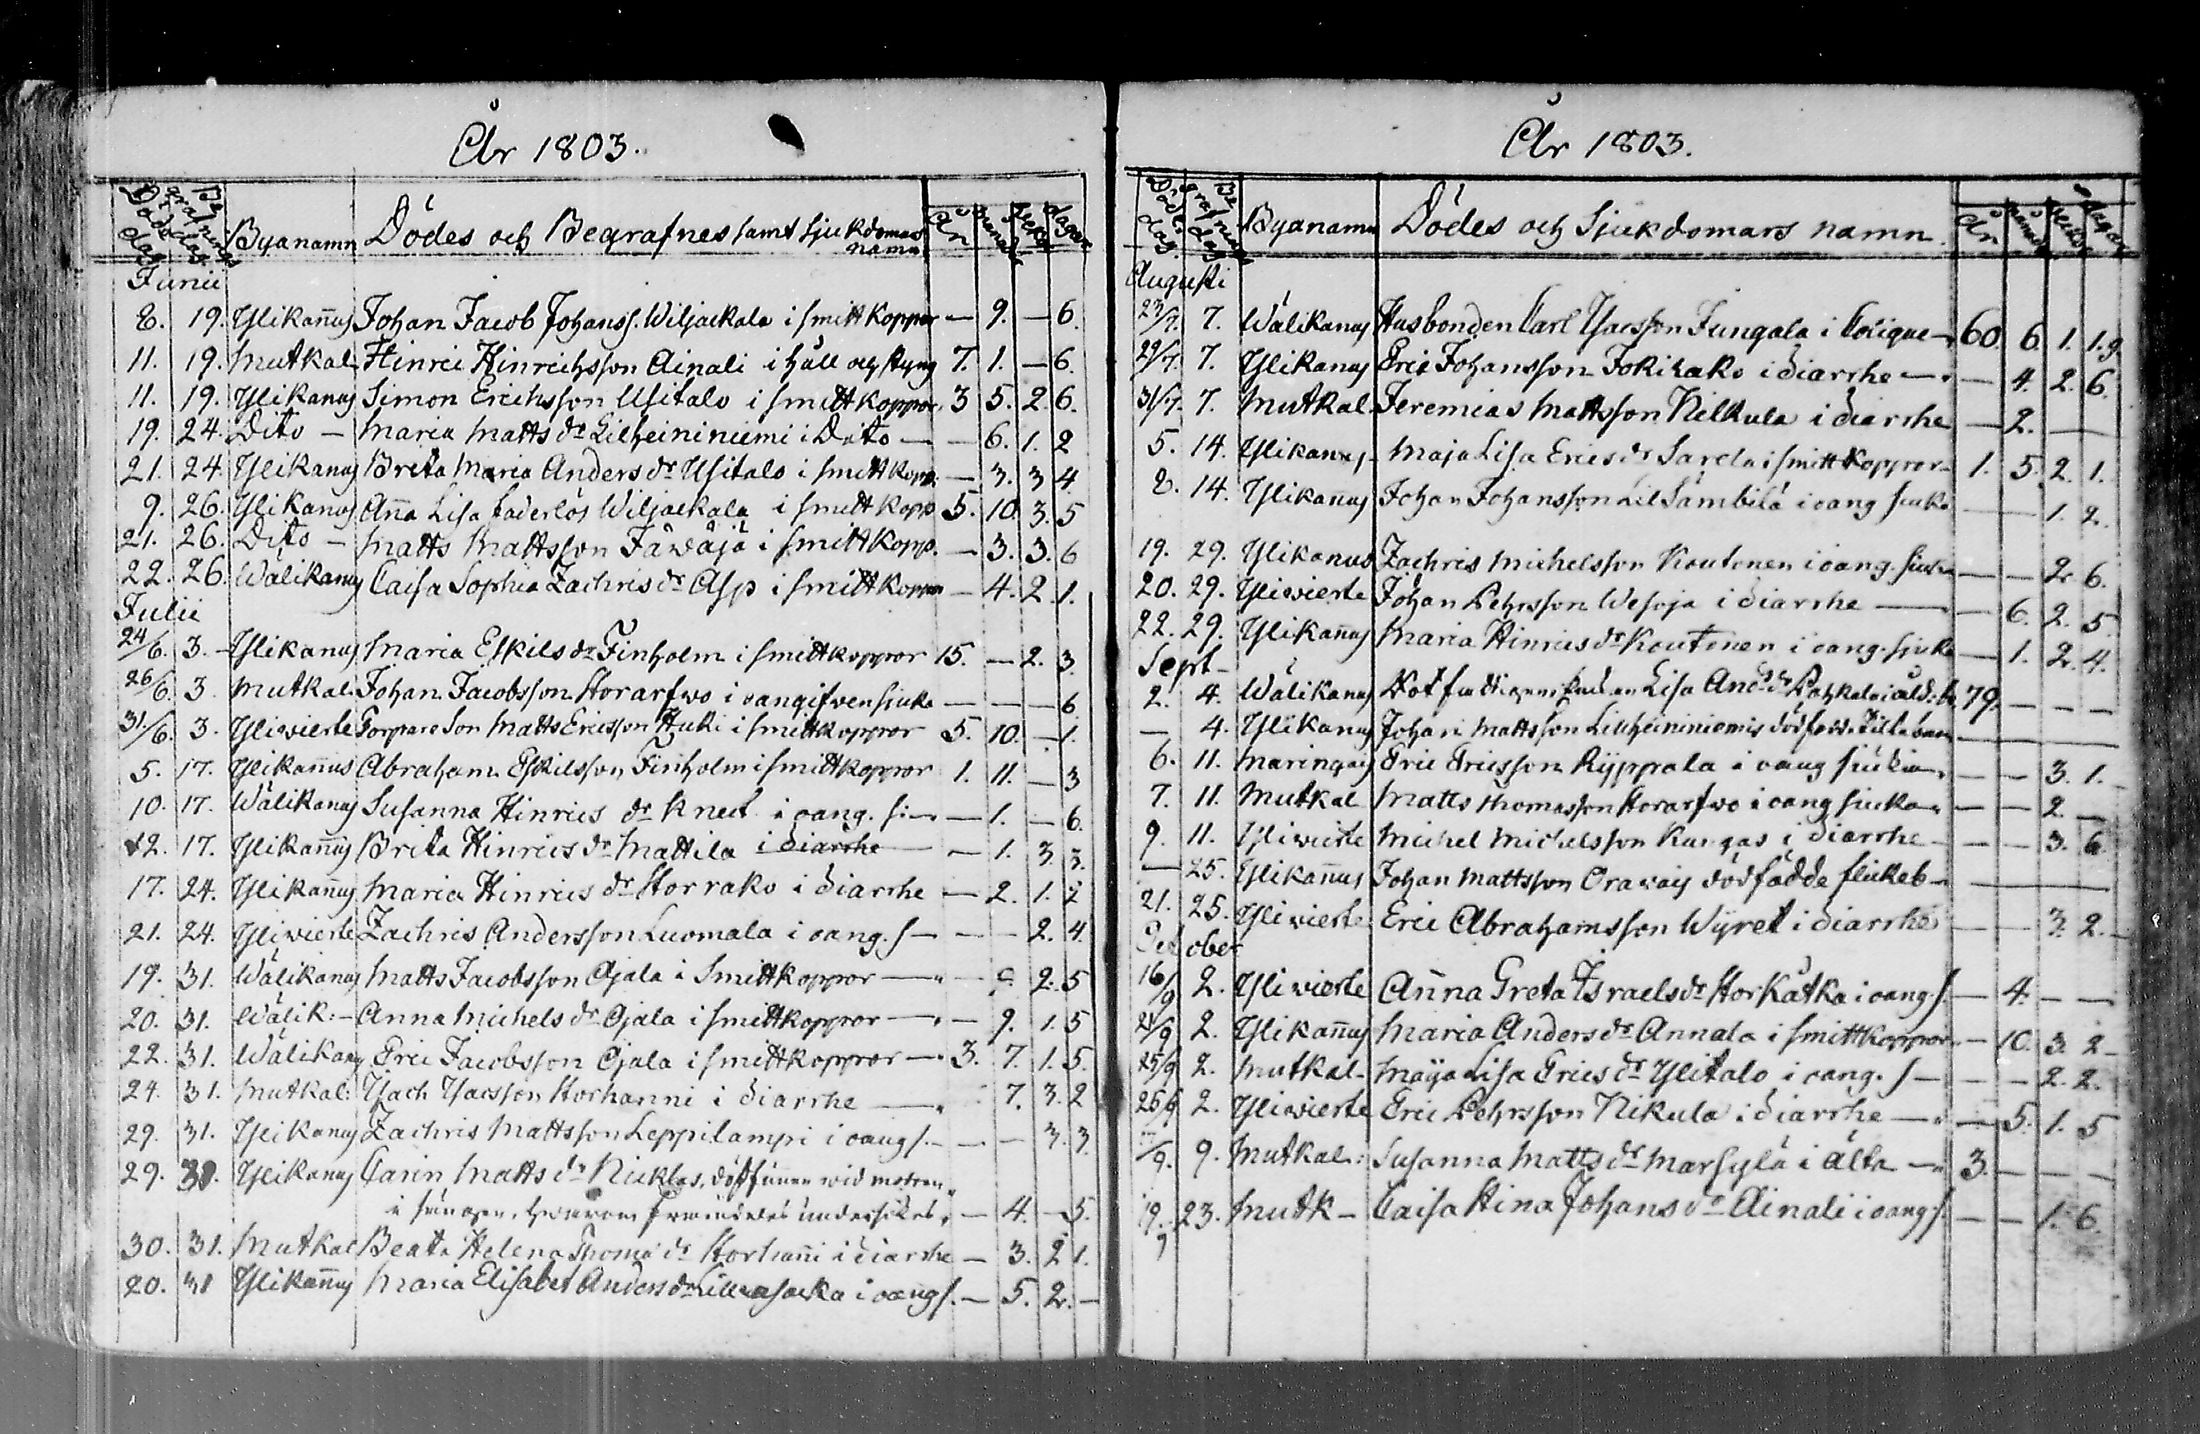 År 1803.
Döde dag Begrafnings dag Byanamn Dödes och Begrafnes samt sjukdomars namn År månader weckor dagar
Junii
8. 19. Ylikañus Johan Jacob Johanss. Wiljackala i smittkoppor — 9. — 6.
11. 19. Mutkal. Hinric Hinrichsson Ainali i håll och styng 7. 1. — 6.
11. 19. Ylikanus Simon Erichsson Usitalo i smittkoppor 3 5. 2. 6.
19. 24. Dito — Maria Matts dr Lilheininiemi i Dito — — 6. 1. 2
21. 24. Ylikanus Breta Maria Anders dr Usitalo i smittkopp. — 3. 3 4
9. 26. Ylikanus Aña Lisa faderlös Wiljackala i smittkopp 5. 10. 3. 5
21. 26. Dito — Matts Mattsson Jäwäjä i smittkopp. — 3. 3. 6
22. 26. Wälikanus Caisa Sophia Zachris dr Asp i smittkoppor — 4. 2. 1.
Julii
24/6. 3. Ylikanus Maria Eskils dr Finholm i smittkoppor 15. — 2. 3
26/6. 3. Mutkal. Johan Jacobsson Storarfwo i oangifwen siuka — — — 6
31/6. 3. Yliwierte Torpare Son Matts Ericsson Huki i smittkoppor 5. 10. — 1.
5. 17. Ylikañus Abraham Eskilsson Finholm i smittkoppor 1. 11. — 3
10. 17. Wälikanus Susanna Hinrics dr Knect i oang. s. — — 1. — 6.
12. 17. Ylikañus Brita Hinrics dr Mattila i diarrhe — 1. 3 3.
17. 24. Ylikañus Maria Hinrics dr Storrako i diarrhe — 2. 1. 2
21. 24. Yliwierte Zachris Andersson Luomala i oang. s — — — 2. 4.
19. 31. Wälikanus Matts Jacobsson Ojala i Smittkoppor — — 2. 5
20. 31. Wälik: — Anna Michels dr Ojala i smittkoppor — — 9. 1. 5
22. 31. Wälikanus Eric Jacobsson Ojala i smittkoppor — 3. 7. 1. 5.
24. 31. Mutkal: Isach Isacsson Storhanni i diarrhe — 7. 3. 2
29. 31. Ylikanus Zachris Mattsson Leppilampi i oang s. — — 3. 3.
29. 31. Ylikanus Carin Matts dr Nicklas, död funnen wid modren
i sängen, hwarom framdeles undersökes, — 4. — 5.
30. 31. Mutkal Beata Helena Thoma dr Storhañi i diarrhe — 3. 2 1.
20. 31 Ylikañus Maria Elisabet Anders dr i oang s. — 5. 2. —
År 1803.
Döde dag. Begrafnings dag Byanamn Dödes och Sjukdomars namn. År månader weckor dagar
Augusti
23/7. 7. Wälikanus Husbonden Carl Isacsson Jungala i Colique — 60 6. 1. 1.
29/7. 7. Ylikanus Eric Johansson Jokirako i diarrhe — — 4. 2. 6.
31/7. 7. Mutkal. Jeremias Mattsson Nikula i diarrhe — 2. —
5. 14. Ylikanus Maja Lisa Erics dr Sarela i smittkoppor 1. 5. 2. 1.
8. 14. Ylikanus Johan Johansson LilSämbilä i oang siuka — — 1. 2.
19. 29. Ylikanus Zachris Michelsson Koutonen i oang. siuka — — 2. 6.
20. 29. Yliwierte Johan Pehrsson Wesoja i diarrhe — — 6. 2. 5
22. 29. Ylikañus Maria Hinrics dr Koutonen i oang. siuka — 1. 2. 4.
Sept —
2. 4. Wälikanus Rotfattigan Enkan Lisa And. dr Pahkala i ålderd. 79. — — —
— 4. Ylikanus Johan Mattsson Lillheininiemis dödfödde gille barn —
6. 11. Maringais Eric Ericsson Ryppala i oang siuka — — 3. 1.
7. 11. Mutkal Matts Thomasson Storarfwo i oang siuka — — 2 —
9. 11. Yliwierte Michel Michelsson Kangas i diarrhe — — 3. 6
— 25. Ylikañus Johan Mattsson Orawais dödfödde flickeb —
21. 25. Yliwierte Eric Abrahamsson Wyret i diarrhe — — 3. 2. —
October
16/9 2. Yliwierte Aña Greta Israels dr Storkätka i oang s. — 4. — —
21/9 2. Ylikañus Maria Anders dr Annala i smittkoppor — 10. 3. 2 —
25/9 2. Mutkal. Maija Lisa Erics dr Ylitalo i oang. s — — — 2. 2.
25/9 2. Yliwierte Eric Pehrsson Nikula i diarrhe — — 5. 1. 5
/9. 9. Mutkal: Susanna Matts dr Marsylä i älta — 3. — — —
19. 23. Mutk — Caisa Stina Johans dr Ainali i oang s. — — 1. 6.